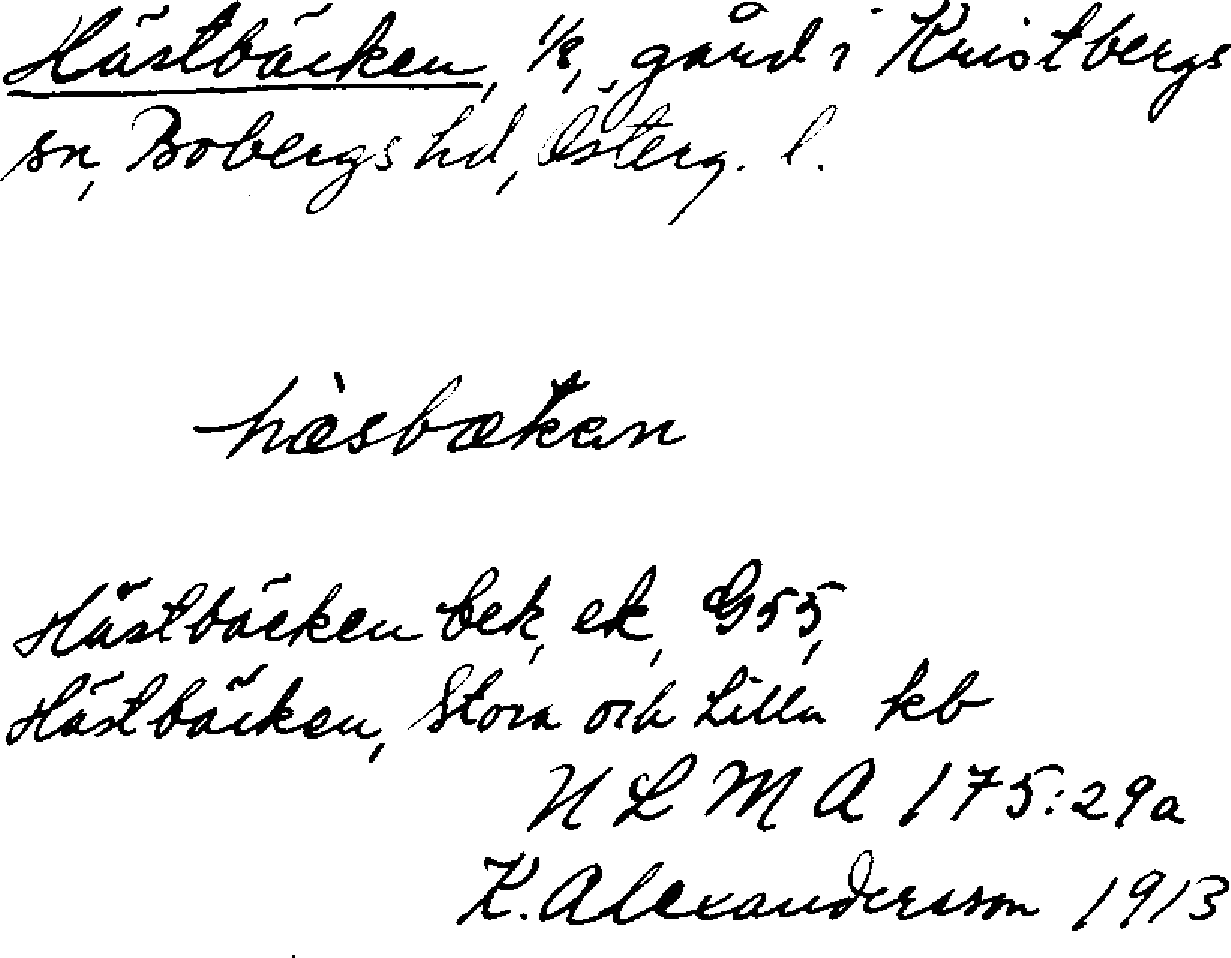 Hästbäcken, 1/8, gård i Kristbergs
sn, Bobergs hd, Österg. l.
hæ̀sbækan
Hästbäcken bek, ek, G55,
Hästbäcken, Stora och Lilla kb
N L M A 175:29a
K. Alexandersson 1913